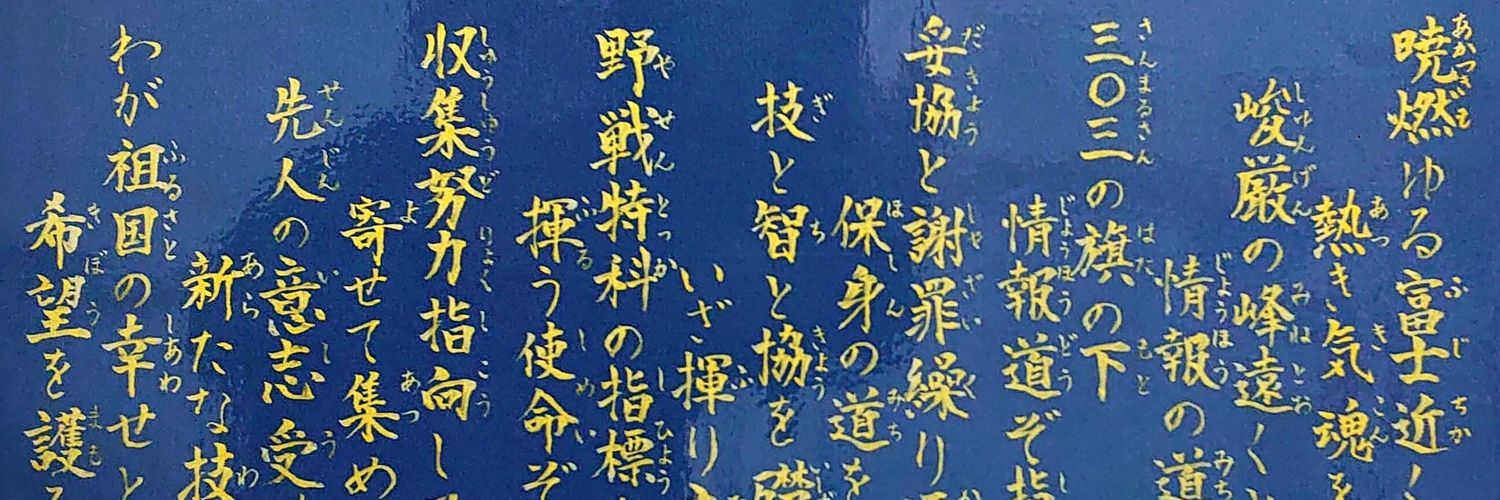 暁燃ゆる富士近く
熱き気魂を
峻厳の峰遠く
情報の道
三〇三の旗の下
情報道ぞ指
妥協と謝罪繰り
保身の道を
技と智と協を礎
いざ揮り
野戦特科の指標
揮う使命ぞ
収集努力指向し
寄せて集め
先人の意志受
新たな技
わが祖国の幸せと
希望を護る